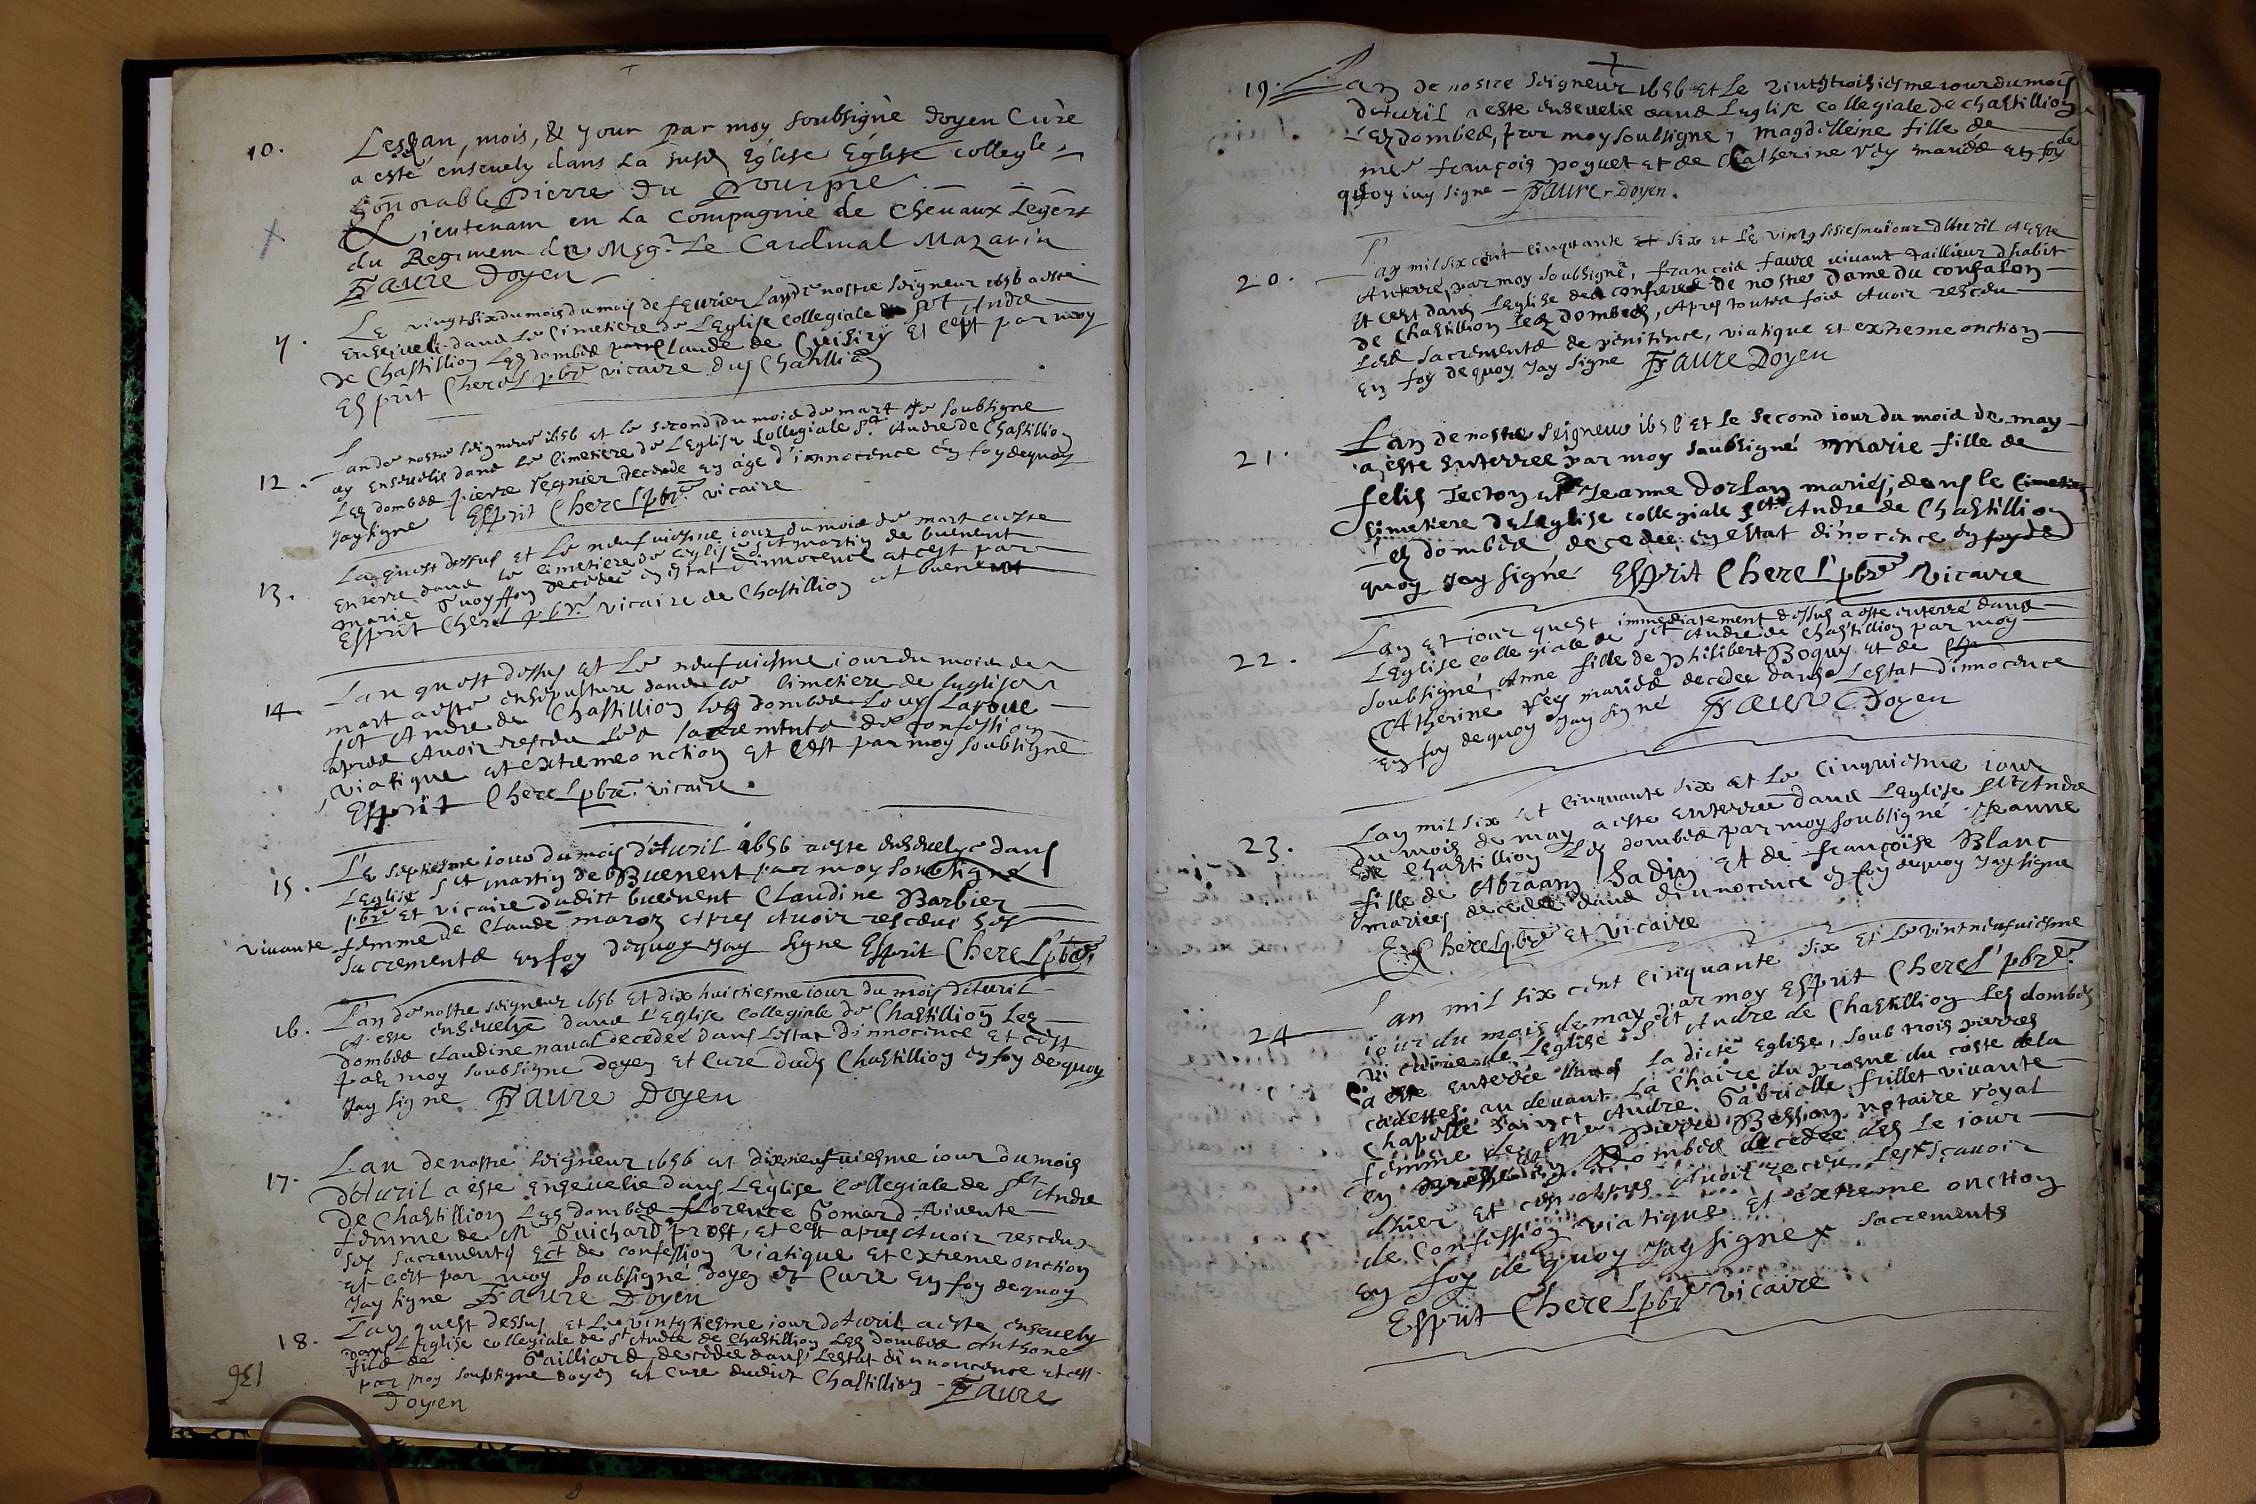 10.
Lesd an, mois, & jour par moy soubsigné doyen Curé
a esté ensevely dans la susd Eglise Eglise collegle
honorable Pierre du Pourprie
Lieutenam en la Compagnie de Chevaux Legers
du Regimem de Msgr Le Cardinal Mazarin
Faure Doyen
Le vingtsix du mois de feurier Lan de nostre seigneur 1656 a esté
enseveli dans le Cimetiere de L'Eglise Collegiale de Sct Andre
de Chastillion Les Dombes Claude de Cuisiry Et c'est par moy
Esprit Cherel pbre vicaire dud Chastillion
12.
Lan de nostre seigneur 1656 et le second du mois de mart Je soubsigne
ay ensevelis dans le Cimetiere de L'Eglise Collegiale Sct Andre de Chastillion
Les dombes pierre regnier decede en age d'innocence en foy dequoy
Jay signe Esprit Cherel pbre vicaire
13.
Lan quest dessus et le neufuiesme iour du mois de mart a esté
enterre dans le cimetiere de l'eglise Sct martin de buenent
marie decedee en estat d'innocence et cest par
Esprit Cherel pbre vicaire de Chastillion et buenent
14
Lan quest dessus et le neufuiesme iour du mois de
mart a esté ensepulture dans le Cimetiere de leglise
Sct Andre de Chastillion les dombes Louys Laroue
apres Avoir rescdu les sacrements de confession
viatique et extremeonction et c'est par moy soubsigne
Esprit Cherel pbre vicaire.
15.
Le septiesme iour du mois d'Avril 1656 a esté ensevelye dans
L'eglise Sct martin de Buenent par moy soubsigné
pbre et vicaire dudict buenent Claudine Barbier
vivante femme de Claude maron apres Avoir rescdue ses
sacrements en foy dequoy Jay signe Esprit Cherel pbre
16.
L'an de nostre seigneur 1656 et dix huictiesme iour du mois d'Avril
A esté ensevelye dans L'Eglise Collegiale de Chastillion Les
dombes claudine naual decedée dans L'estat d'innocence Et c'est
par moy soubsigne doyen et Curé dudy Chastillion en foy dequoy
Jay signe Faure Doyen
17.
Lan de nostre seigneur 1656 et dixneufuiesme iour du mois
d'Avril a esté ensevelie dans L'Eglise Collegiale de Sct Andre
de Chastillion Les dombes florence Gomard vivente
femme de M Guichard prost, et c'est apres Avoir rescdu
ses sacrements ect de confession viatique et extreme onction
et c'est par moy soubsigné doyen et Curé en foy dequoy
Jay signe Faure Doyen
18.
Lan quest dessus et le vintgtiesme iour d'Avril a esté ensevely
dans L'Eglise collegiale de St Andre de Chastillion Les dombes Anthone
fils de Gailliard decedee dans L'estat d'innocence et c'est
par moy soubsigne doyen et Curé dudict Chastillion - Faure
Doyen
136
19.
Lan de nostre seigneur 1656 et Le vintgtroisiesme iour du mois
d'Avril a esté ensevelie dans L'eglise collegiale de chastillion
Les dombes, par moy soubsigne, magdelleine fille de
mre françois poguet et de Catherine rey mariés en foy de
quoy iay signe - Faure - Doyen.
20.
L'an mil six cent cinquante et six et le vintg sisiesme iour d'Avril A esté
Anterré, par moy soubsigné, françois faure vivant tailleur d'habit
Et c'est dans L'eglise des confreres de nostre Dame du confalon
de Chastillion Les dombes, Apres toutes fois Avoir rescdu
Les sacrements de penitence, viatique et extreme onction
en foy dequoy Jay signe Faure Doyen
21.
Lan de nostre seigneur 1656 et le second iour du mois de may
a esté enterree par moy soubsigné marie fille de
felis Tecton et de Jeanne dorlan mariés, dans le Cimetiere
Cimetiere de Leglise collegiale Sct Andre de Chastillion
Les dombes decedee en estat d'inocence en foy de
quoy Jay signé Esprit Cherel pbre vicaire
22.
Lan et iour quest immediatement dessus a esté enterré dans
L'Eglise collegiale de Sct Andre de Chastillion par moy
soubsigné, Anne fille de philibert Boquy et de
Catherine rey mariés decedee dans L'estat d'innocence
En foy dequoy Jay signé Faure Doyen
23.
Lan mil six et cinquante six et le Cinquiesme iour
du mois de may a esté enterree dans L'eglise Sct Andre
de Chastillion les dombes par moy soubsigné Jeanne
fille de Abraam Sadin et de françoise Blanc
mariees decedee dans d'innocence en foy dequoy Jay signe
E Cherel pbre et vicaire
24
L'an mil six cent Cinquante six et le vintneufuiesme
iour du mois de may par moy Esprit Cherel pbre
vicaire de L'eglise Sct Andre de Chastillion Les dombes
a esté enterrée dans la dicte Eglise, soub trois pierres
cadettes au devant La Chaire du prosne du costé de la
Chapelle sainct Andre, Gabrielle frillet vivante
femme de Me pierre Besson notaire royal
en Dombes decedee des le jour
d'hier et ce Apres Avoir receu Les sçavoir
de Confession viatique et extreme onction
en foy de quoy Jay signe x sacrements
Esprit Cherel pbre vicaire